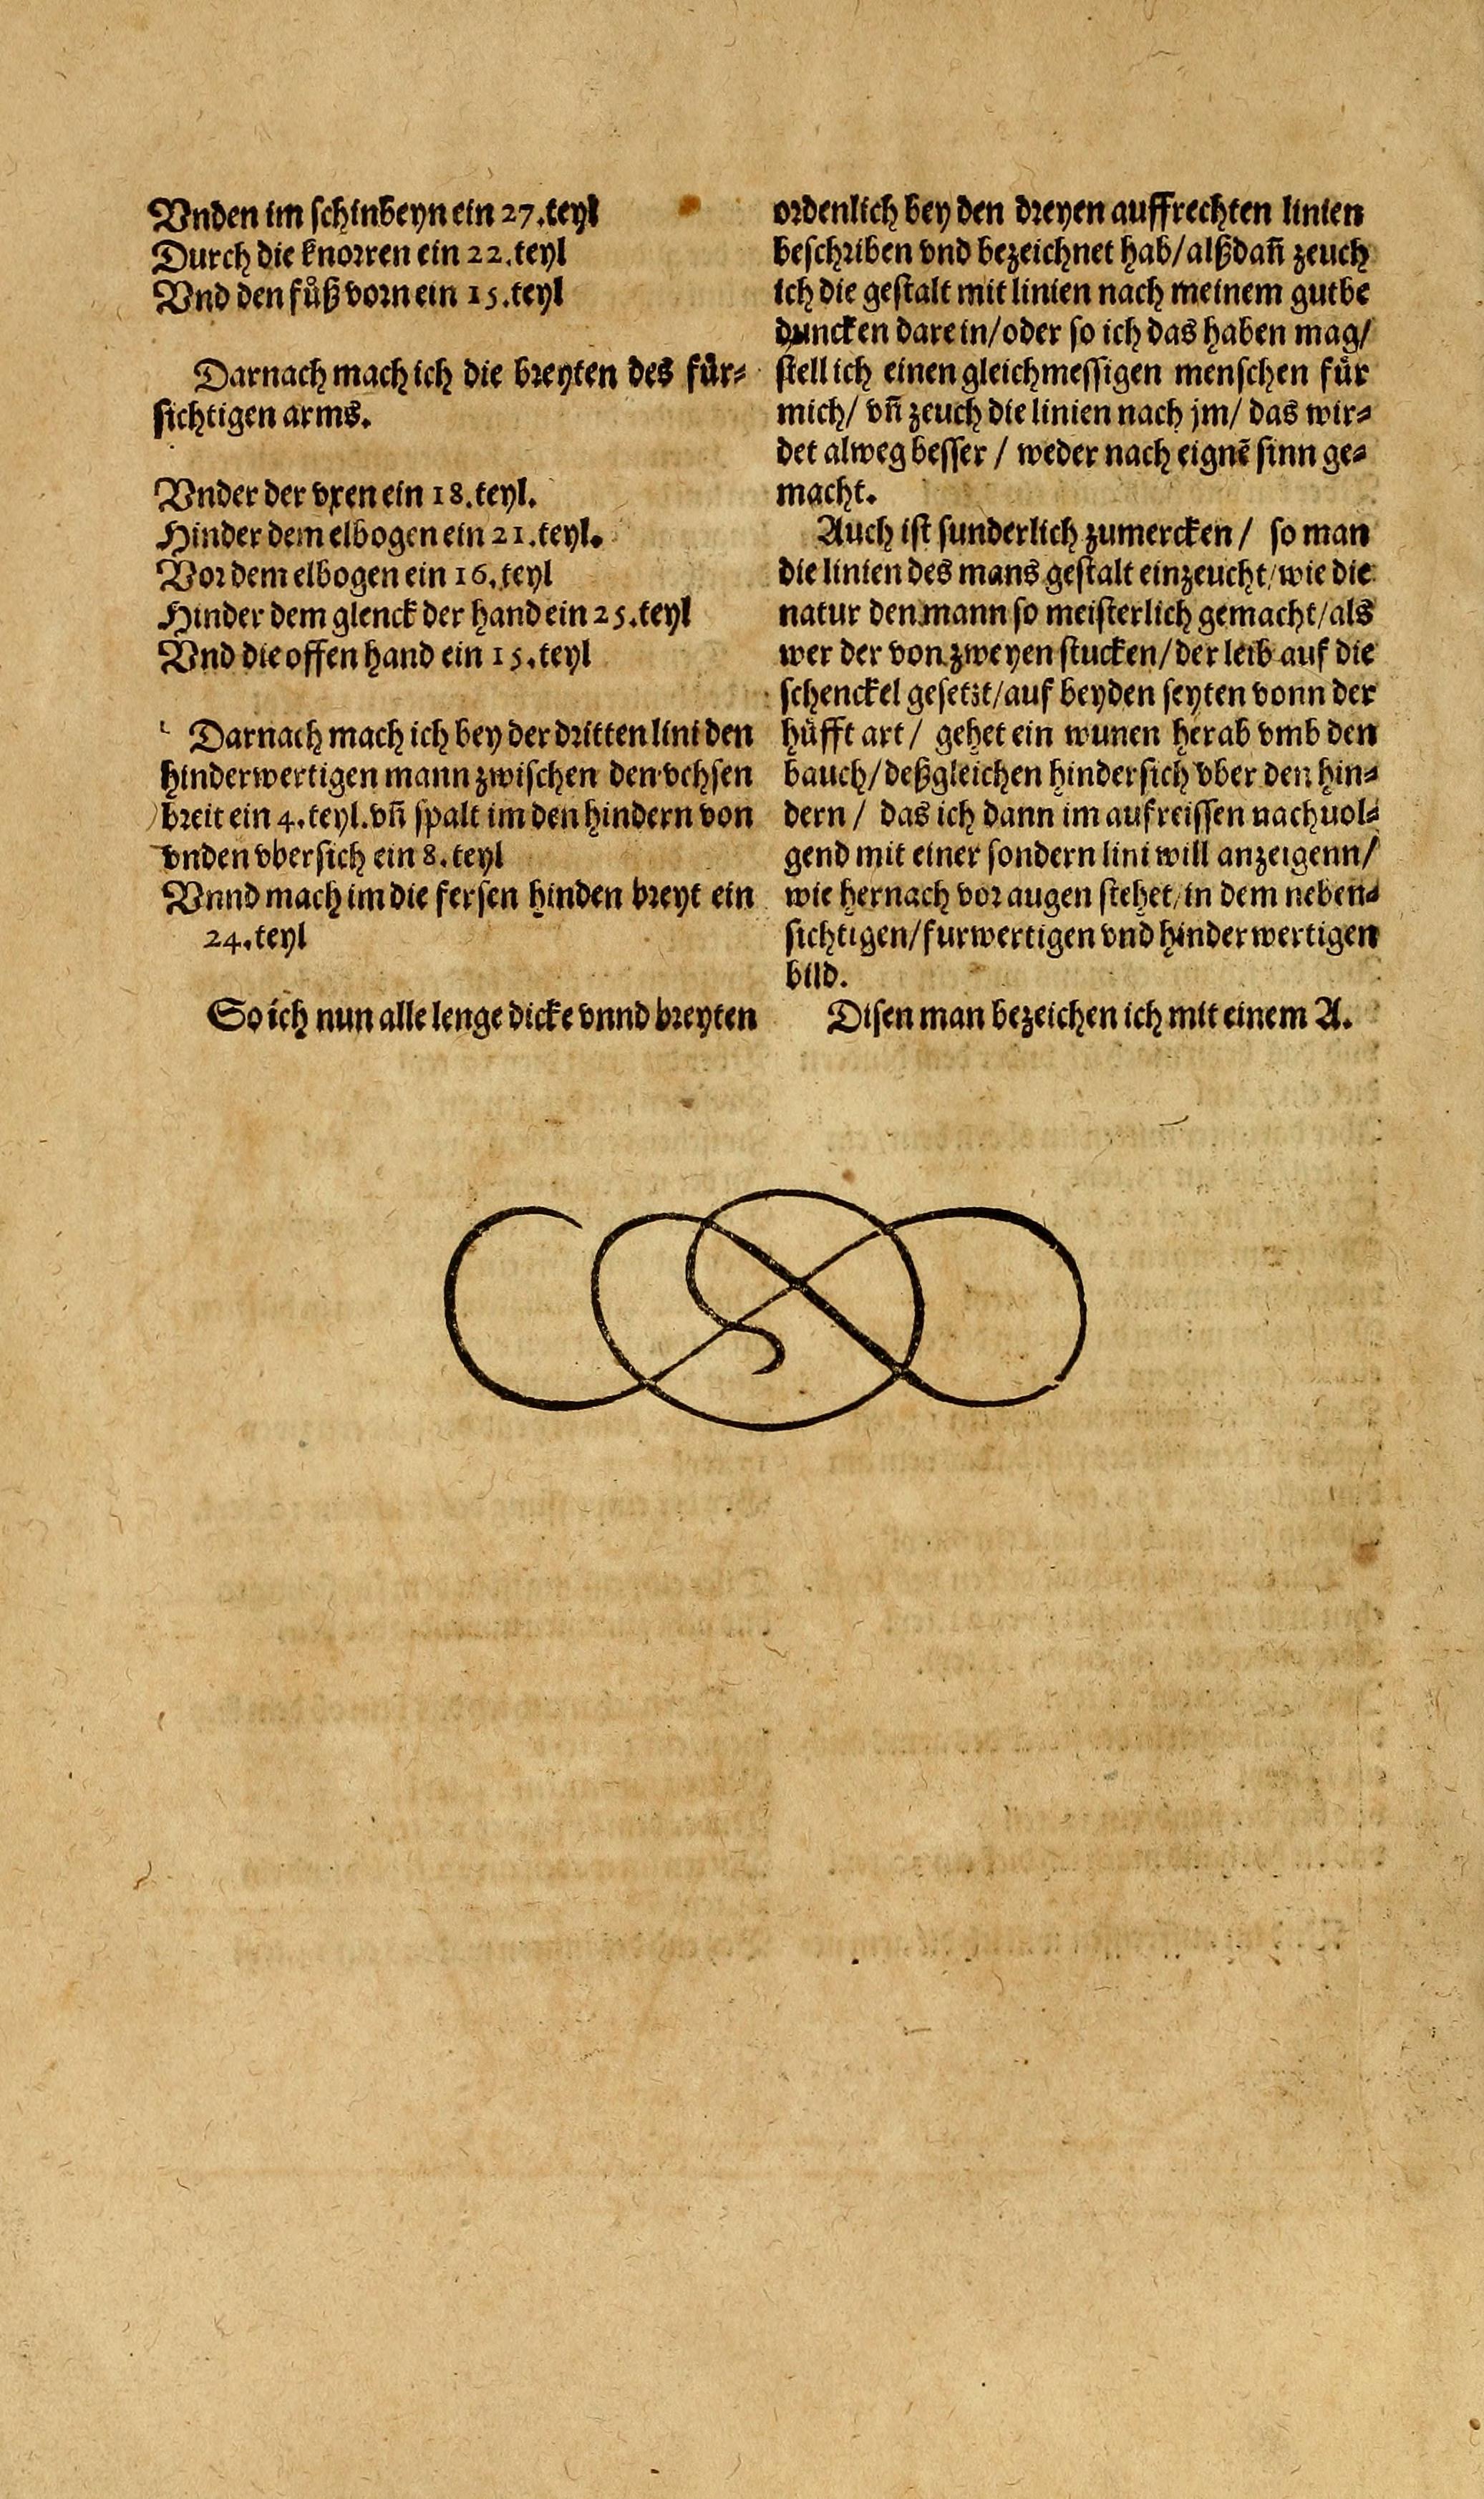 Vnden im schinbeyn ein 27.teyl
Durch die knorren ein 22.teyl
Vnd den fůß vorn ein 15.teyl
Darnach mach ich die breyten des für⸗
sichtigen arms.
Vnder der vxen ein 18.teyl.
Hinder dem elbogen ein 21.teyl.
Vor dem elbogen ein 16.teyl
Hinder dem glenck der hand ein 25.teyl
Vnd die offen hand ein 15.teyl
Darnach mach ich bey der dritten lini den
hinderwertigen mann zwischen den vchsen
breit ein 4.teyl.vñ spalt im den hindern von
vnden vbersich ein 8.teyl
Vnnd mach im die fersen hinden breyt ein
24.teyl
So ich nun alle lenge dicke vnnd breyten
ordenlich bey den dreyen auffrechten linien
beschriben vnd bezeichnet hab/alßdañ zeuch
ich die gestalt mit linien nach meinem gutbe
duncken darein/oder so ich das haben mag/
stell ich einen gleichmessigen menschen für
mich/ vñ zeuch die linien nach jm/ das wir⸗
det alweg besser / weder nach eignē sinn ge⸗
macht.
Auch ist sunderlich zumercken / so man
die linien des mans gestalt einzeucht/wie die
natur den mann so meisterlich gemacht/als
wer der von zweyen stucken/der leib auf die
schenckel gesetzt/auf beyden seyten vonn der
hüfft art / gehet ein wunen herab vmb den
bauch/deßgleichen hindersich vber den hin⸗
dern / das ich dann im aufreissen nachuol⸗
gend mit einer sondern lini will anzeigenn/
wie hernach vor augen stehet/in dem neben⸗
sichtigen/furwertigen vnd hinderwertigen
bild.
Disen man bezeichen ich mit einem A.